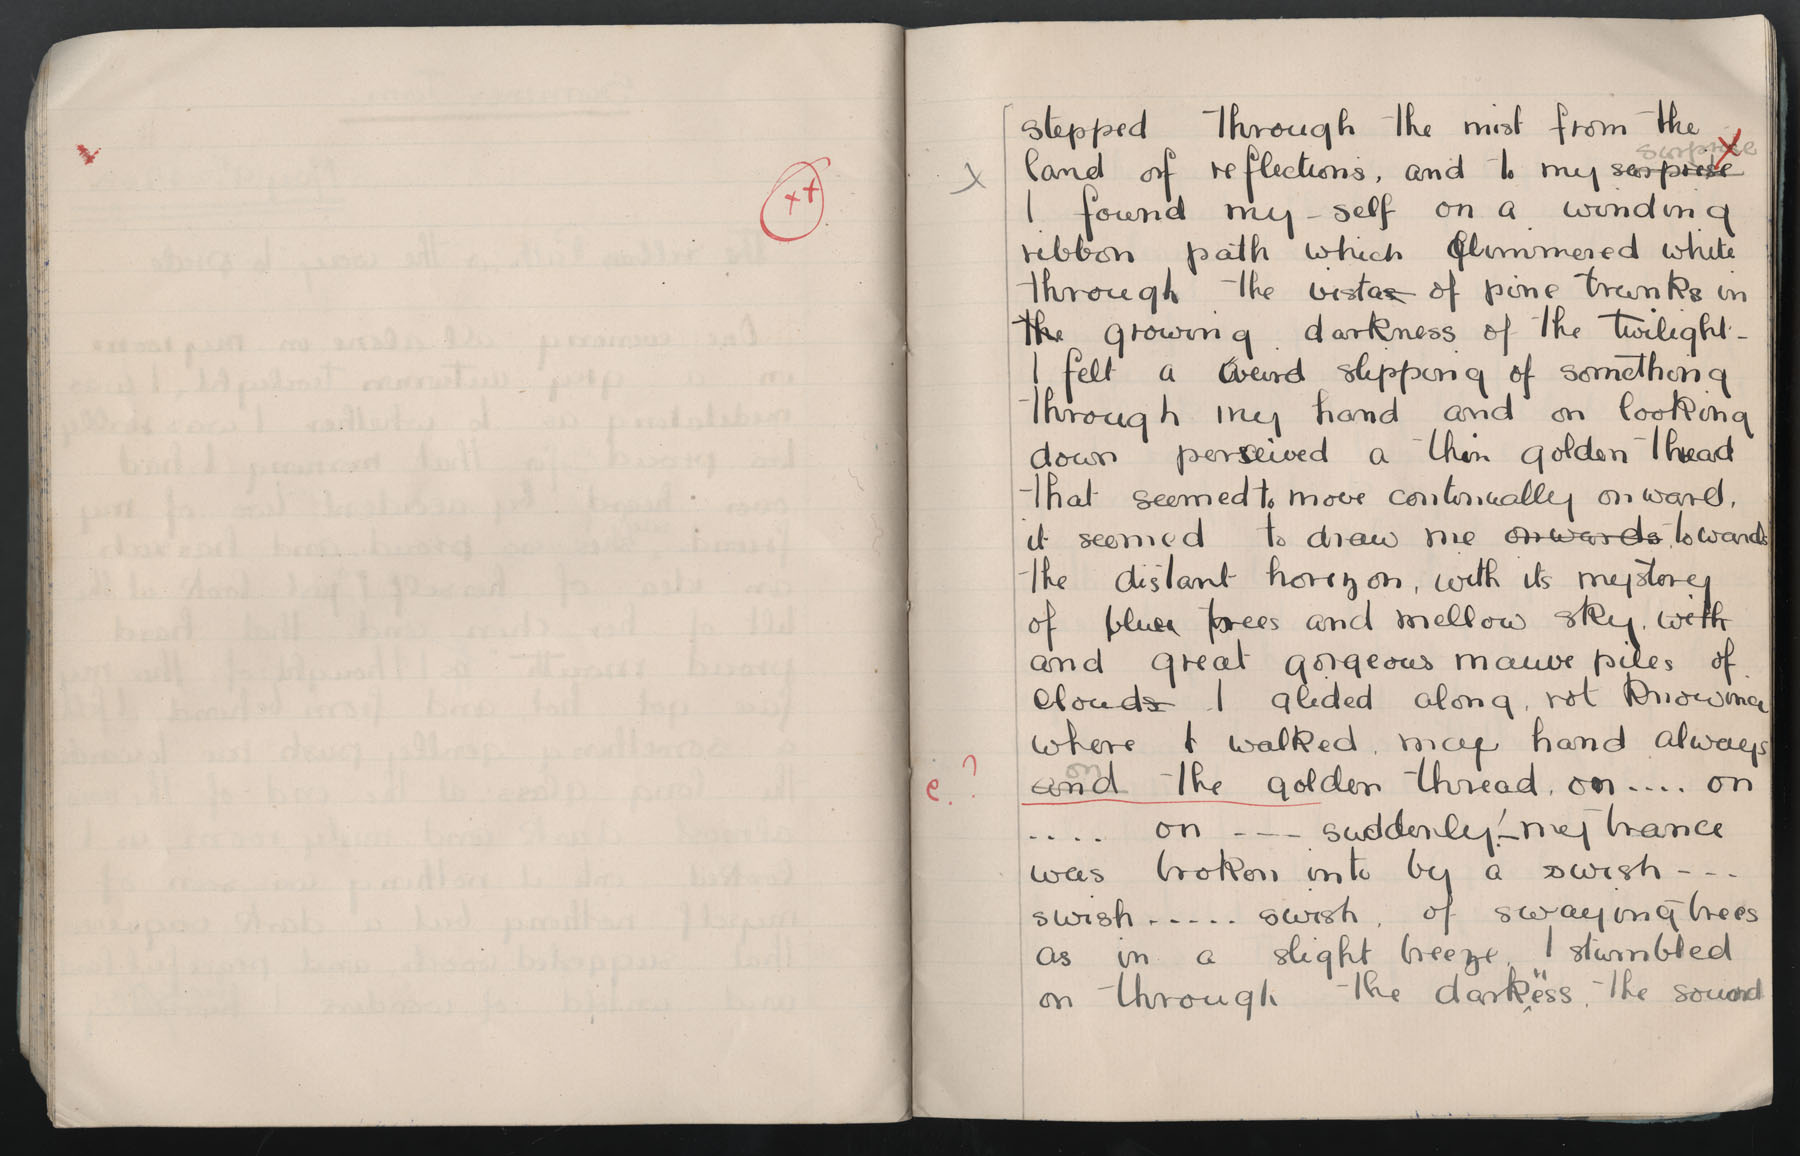 xx
stepped through the mist from the
surprise x
x land of reflections, and to my sorprise
I found my-self on a winding
ribbon path which glimmered white
through the vistas of pine trunks in
the growing darkness of the twilight-
I felt a weird slipping of something
through my hand and on looking
down perseived a thin golden thread
that seemed to move continually onward,
it seemed to draw me onwards towards
the distant horizon, with its mystorey
of trees and mellow sky. with
and great gorgeous mauve piles of
clouds I glided along, not knowing
where I walked, may hand always
on
e.? and the golden thread, on .... on
.... on ---- suddenly!-my trance
was broken into by a swish ---
swish ..... swish, of swaying trees
as in a slight breeze, I stumbled
on through the darkess, the sound